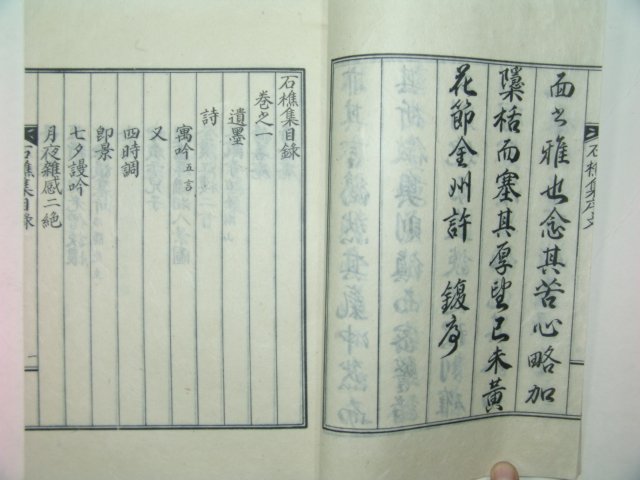 面之雅也念其苦心略加
檃栝而塞其厚望已未黃
花節金州許鍑序
石樵集序文
石樵集目錄
卷之一
遺墨
詩
寓吟五言
又
四時調
即景
七夕謾吟
月夜雜感二絶
石樵集目錄
一